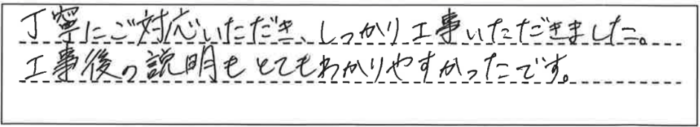 丁寧にご対応いただき、しっかり工事いただきました。
工事後の説明もとてもわかりやすかったです。